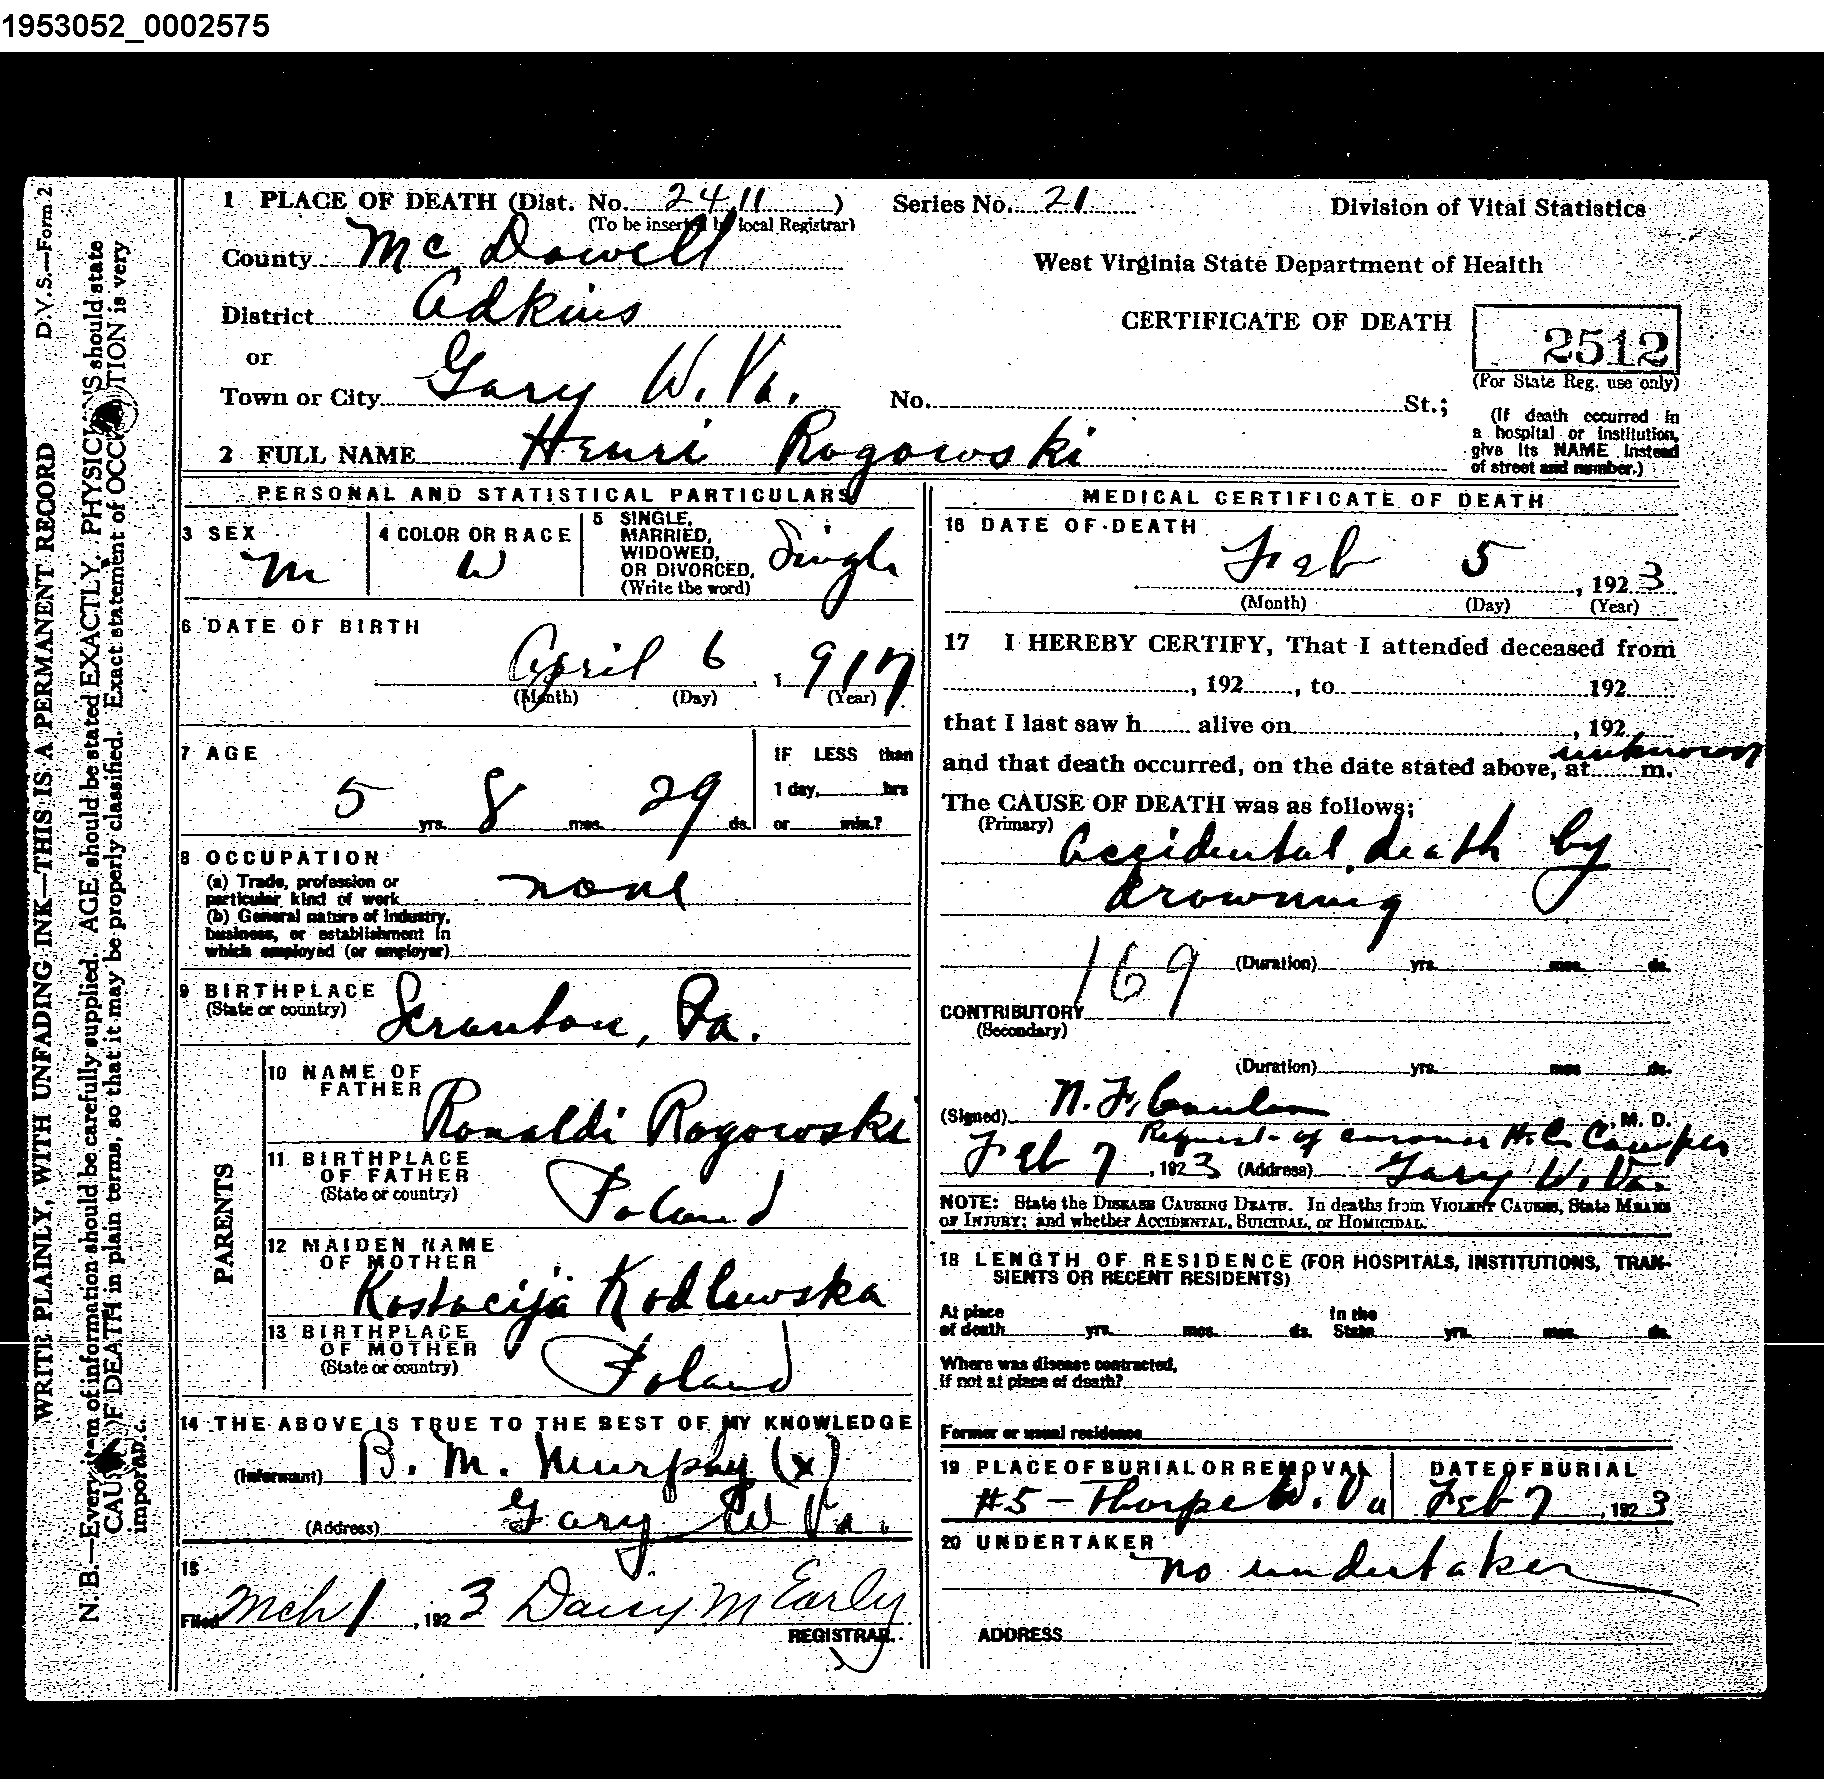 1953052_0002575
D.V.S.—Form 2
WRITE PLAINLY, WITH UNFADING INK—THIS IS A PERMANENT RECORD
N. B.—Every item of information should be carefully supplied. AGE should be stated EXACTLY. PHYSICIANS should state
CAUSE OF DEATH in plain terms, so that it may be properly classified. Exact statement of OCCUPATION is very
important.
1 PLACE OF DEATH (Dist. No. 2411) Series No. 21 Division of Vital Statistics
(To be inserted by local Registrar)
County Mc Dowell West Virginia State Department of Health
District Adkins CERTIFICATE OF DEATH 2512
or (For State Reg. use only)
Town or City Gary W. Va. No. St.;
(If death occurred in a hospital or institution, give its NAME instead of street and number.)
2 FULL NAME Henri Rogowski
PERSONAL AND STATISTICAL PARTICULARS
3 SEX M
4 COLOR OR RACE W
5 SINGLE, MARRIED, WIDOWED, OR DIVORCED, (Write the word) Single
6 DATE OF BIRTH
April 6, 1917
(Month) (Day) (Year)
7 AGE IF LESS than
5 yrs. 8 mos. 29 ds. 1 day, hrs
or min.?
8 OCCUPATION
(a) Trade, profession or
particular kind of work none
(b) General nature of Industry,
business, or establishment in
which employed (or employer)
9 BIRTHPLACE
(State or country) Scranton, Pa.
PARENTS
10 NAME OF
FATHER Ronaldi Rogowski
11 BIRTHPLACE
OF FATHER
(State or country) Poland
12 MAIDEN NAME
OF MOTHER Kostacija Kodlewska
13 BIRTHPLACE
OF MOTHER
(State or country) Poland
14 THE ABOVE IS TRUE TO THE BEST OF MY KNOWLEDGE
(Informant) B. M. Murphy (x)
(Address) Gary W Va.
15
Filed Mch 1, 1923 Daisy M Early
REGISTRAR.
MEDICAL CERTIFICATE OF DEATH
16 DATE OF DEATH
Feb 5, 1923
(Month) (Day) (Year)
17 I HEREBY CERTIFY, That I attended deceased from
, 192 , to 192
that I last saw h alive on , 192
and that death occurred, on the date stated above, at unknown m.
The CAUSE OF DEATH was as follows;
(Primary) Accidental death by
drowning
169 (Duration) yrs. mos. ds.
CONTRIBUTORY
(Secondary)
(Duration) yrs. mos. ds.
(Signed) N. F. M. D.
Request of coroner H. C.
Feb 7, 1923 (Address) Gary W. Va.
NOTE: State the DISEASE CAUSING DEATH. In deaths from VIOLENT CAUSES, State MEANS
OF INJURY; and whether ACCIDENTAL, SUICIDAL, or HOMICIDAL.
18 LENGTH OF RESIDENCE (FOR HOSPITALS, INSTITUTIONS, TRAN-
SIENTS OR RECENT RESIDENTS)
At place In the
of death yrs. mos. ds. State yrs. mos. ds.
Where was disease contracted,
if not at place of death?
Former or usual residence
19 PLACE OF BURIAL OR REMOVAL DATE OF BURIAL
#5 - Thorpe W. Va Feb 7, 1923
20 UNDERTAKER
no undertaker
ADDRESS